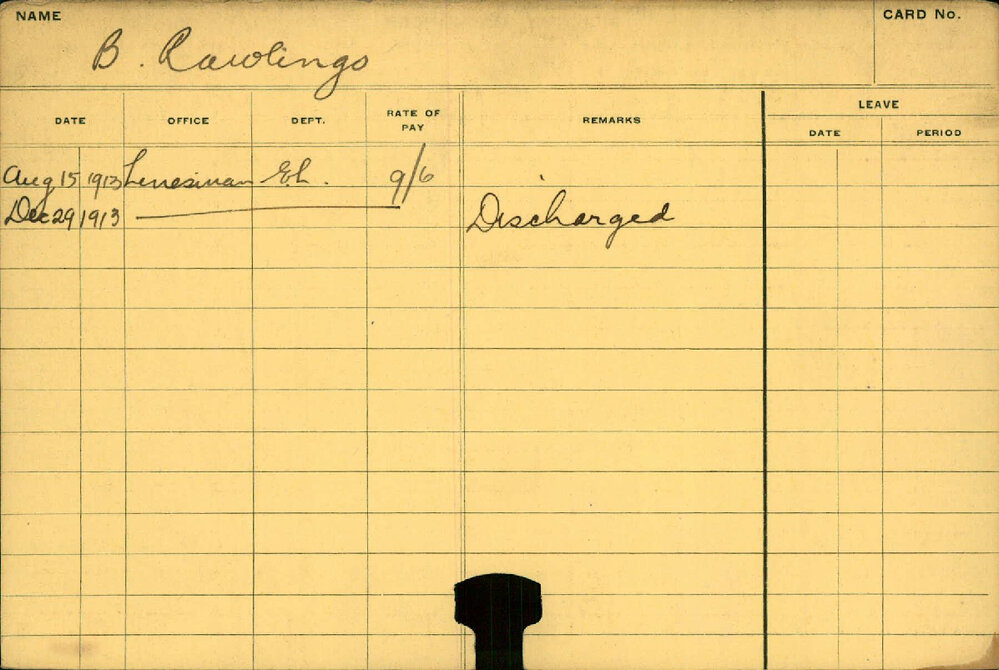 NAME
CARD No.
B. Rawlings
DATE OFFICE DEPT. RATE OF PAY REMARKS LEAVE
DATE PERIOD
Aug 15 1913 Linesman E.L. 9/6
Dec 29 1913 Discharged